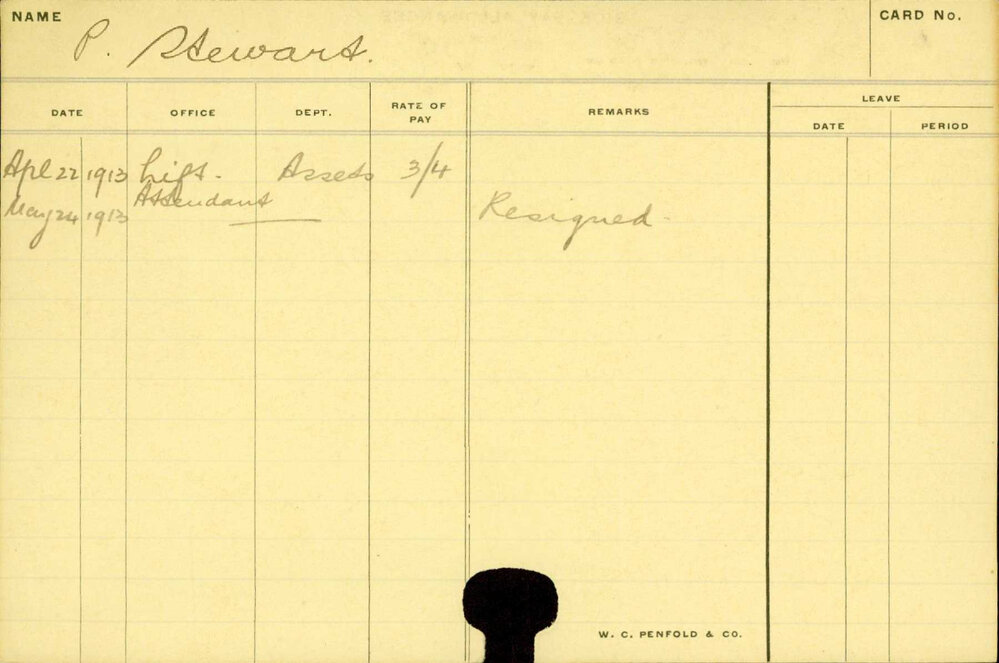 NAME
P. Stewart.
CARD No.
DATE OFFICE DEPT. RATE OF PAY REMARKS LEAVE
DATE PERIOD
Apl 22 1913 Lift. Assets 3/4
Attendant
May 24 1913 Resigned
W. C. PENFOLD & CO.